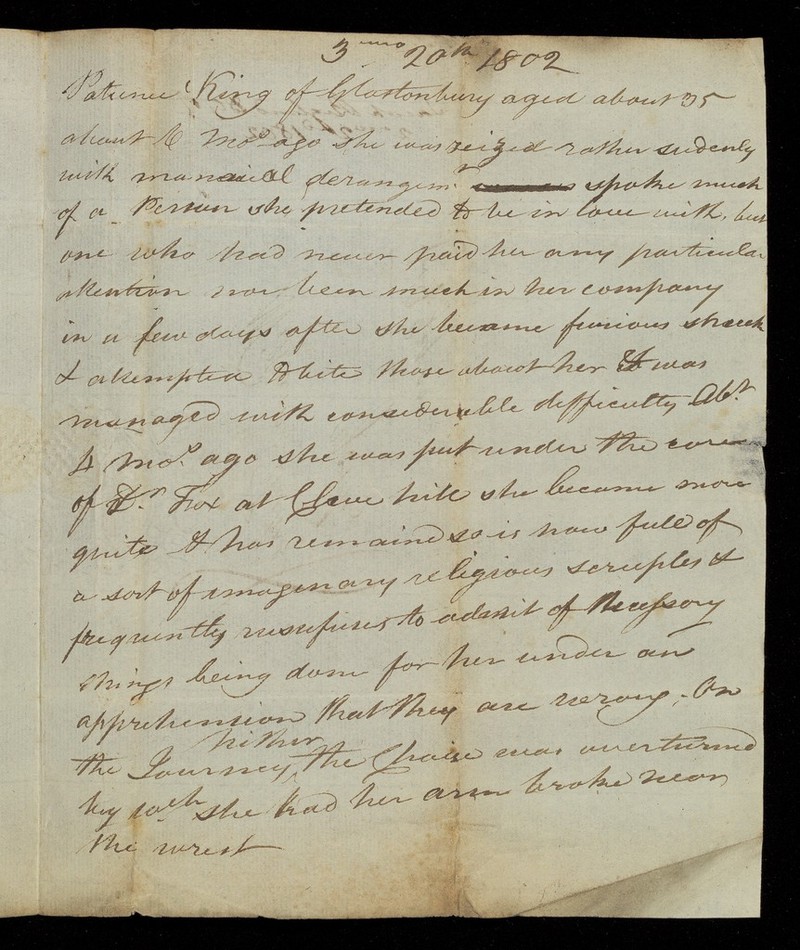 3 mo 20th 1802
Patience King of Glastonbury aged about 35
about 6 Mos. ago she was seized rather sudenly
with maniacal derangemt. spoke much
of a Person she pretended to be in love with, but
one who had never paid her any particular
attention nor been much in her company
in a few days after she became furious struck
& attempted to bite those about her & was
managed with considerable difficulty Abt.
4 Mos. ago she was put under the care
of Dr. Fox at Cleve hill she became more
quite & has remaind so is now full of
a sort of imaginary religious scruples &
frequently refuses to admit of Necessary
things being done for her under an
apprehension that they are wrong. On
the Journey hither the Chaise was overturned
by wch. she had her arm broke near
the wrest